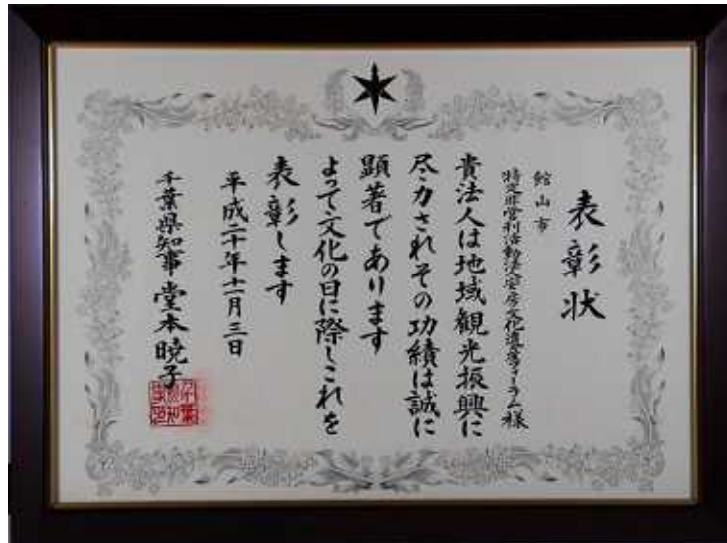 表彰状
館山市
特定非営利活動法人安房文化遺産フォーラム様
貴法人は地域観光振興に
尽力されその功績は誠に
顕著であります
よって文化の日に際しこれを
表彰します
平成二十年十一月三日
千葉県知事 堂本暁子